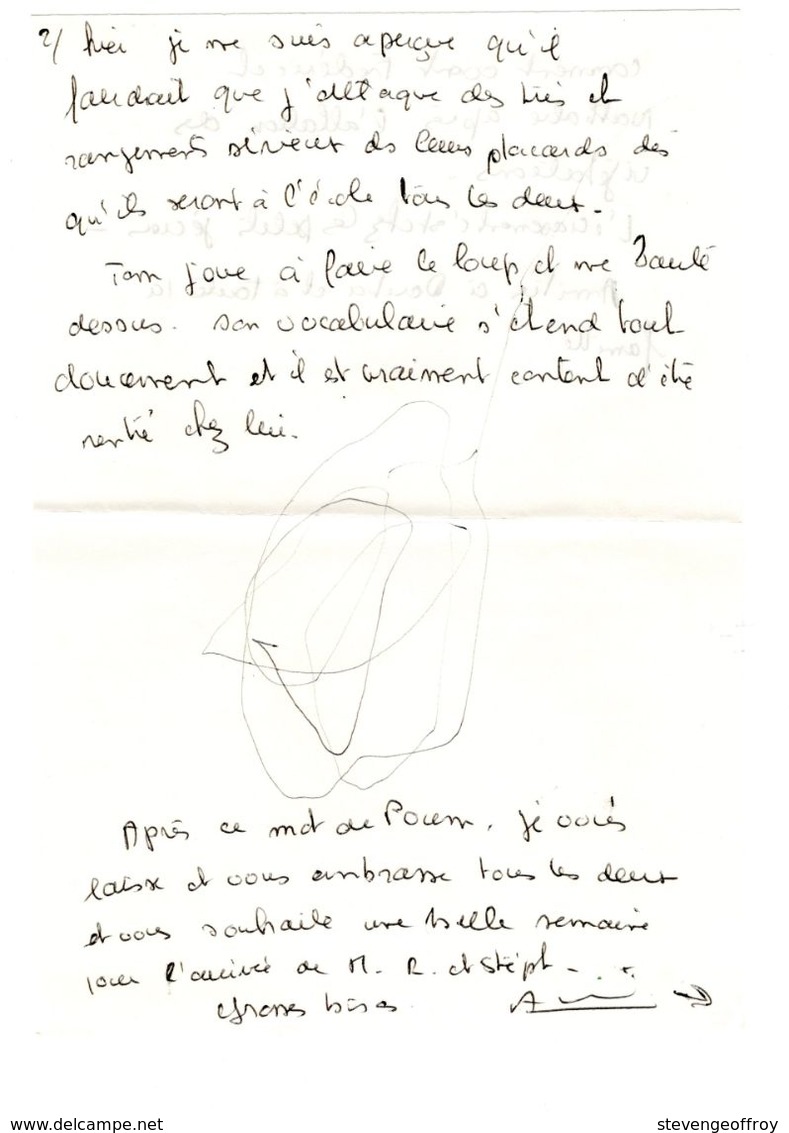 2/ hier je me suis aperçue qu'il
faudrait que j'attaque des tris et
rangements sérieux ds leurs placards dès
qu'ils seront à l'école tous les deux.
Tom joue à faire le loup et me saute
dessus. son vocabulaire s'étend tout
doucement et il est vraiment content d'être
rentré chez lui.
Après ce mot de Poum, je vous
laisse et vous embrasse tous les deux
et vous souhaite une belle semaine
pour l'arrivée de M. R. et Stéph.
Grosses bises
www.delcampe.net
stevengeoffroy